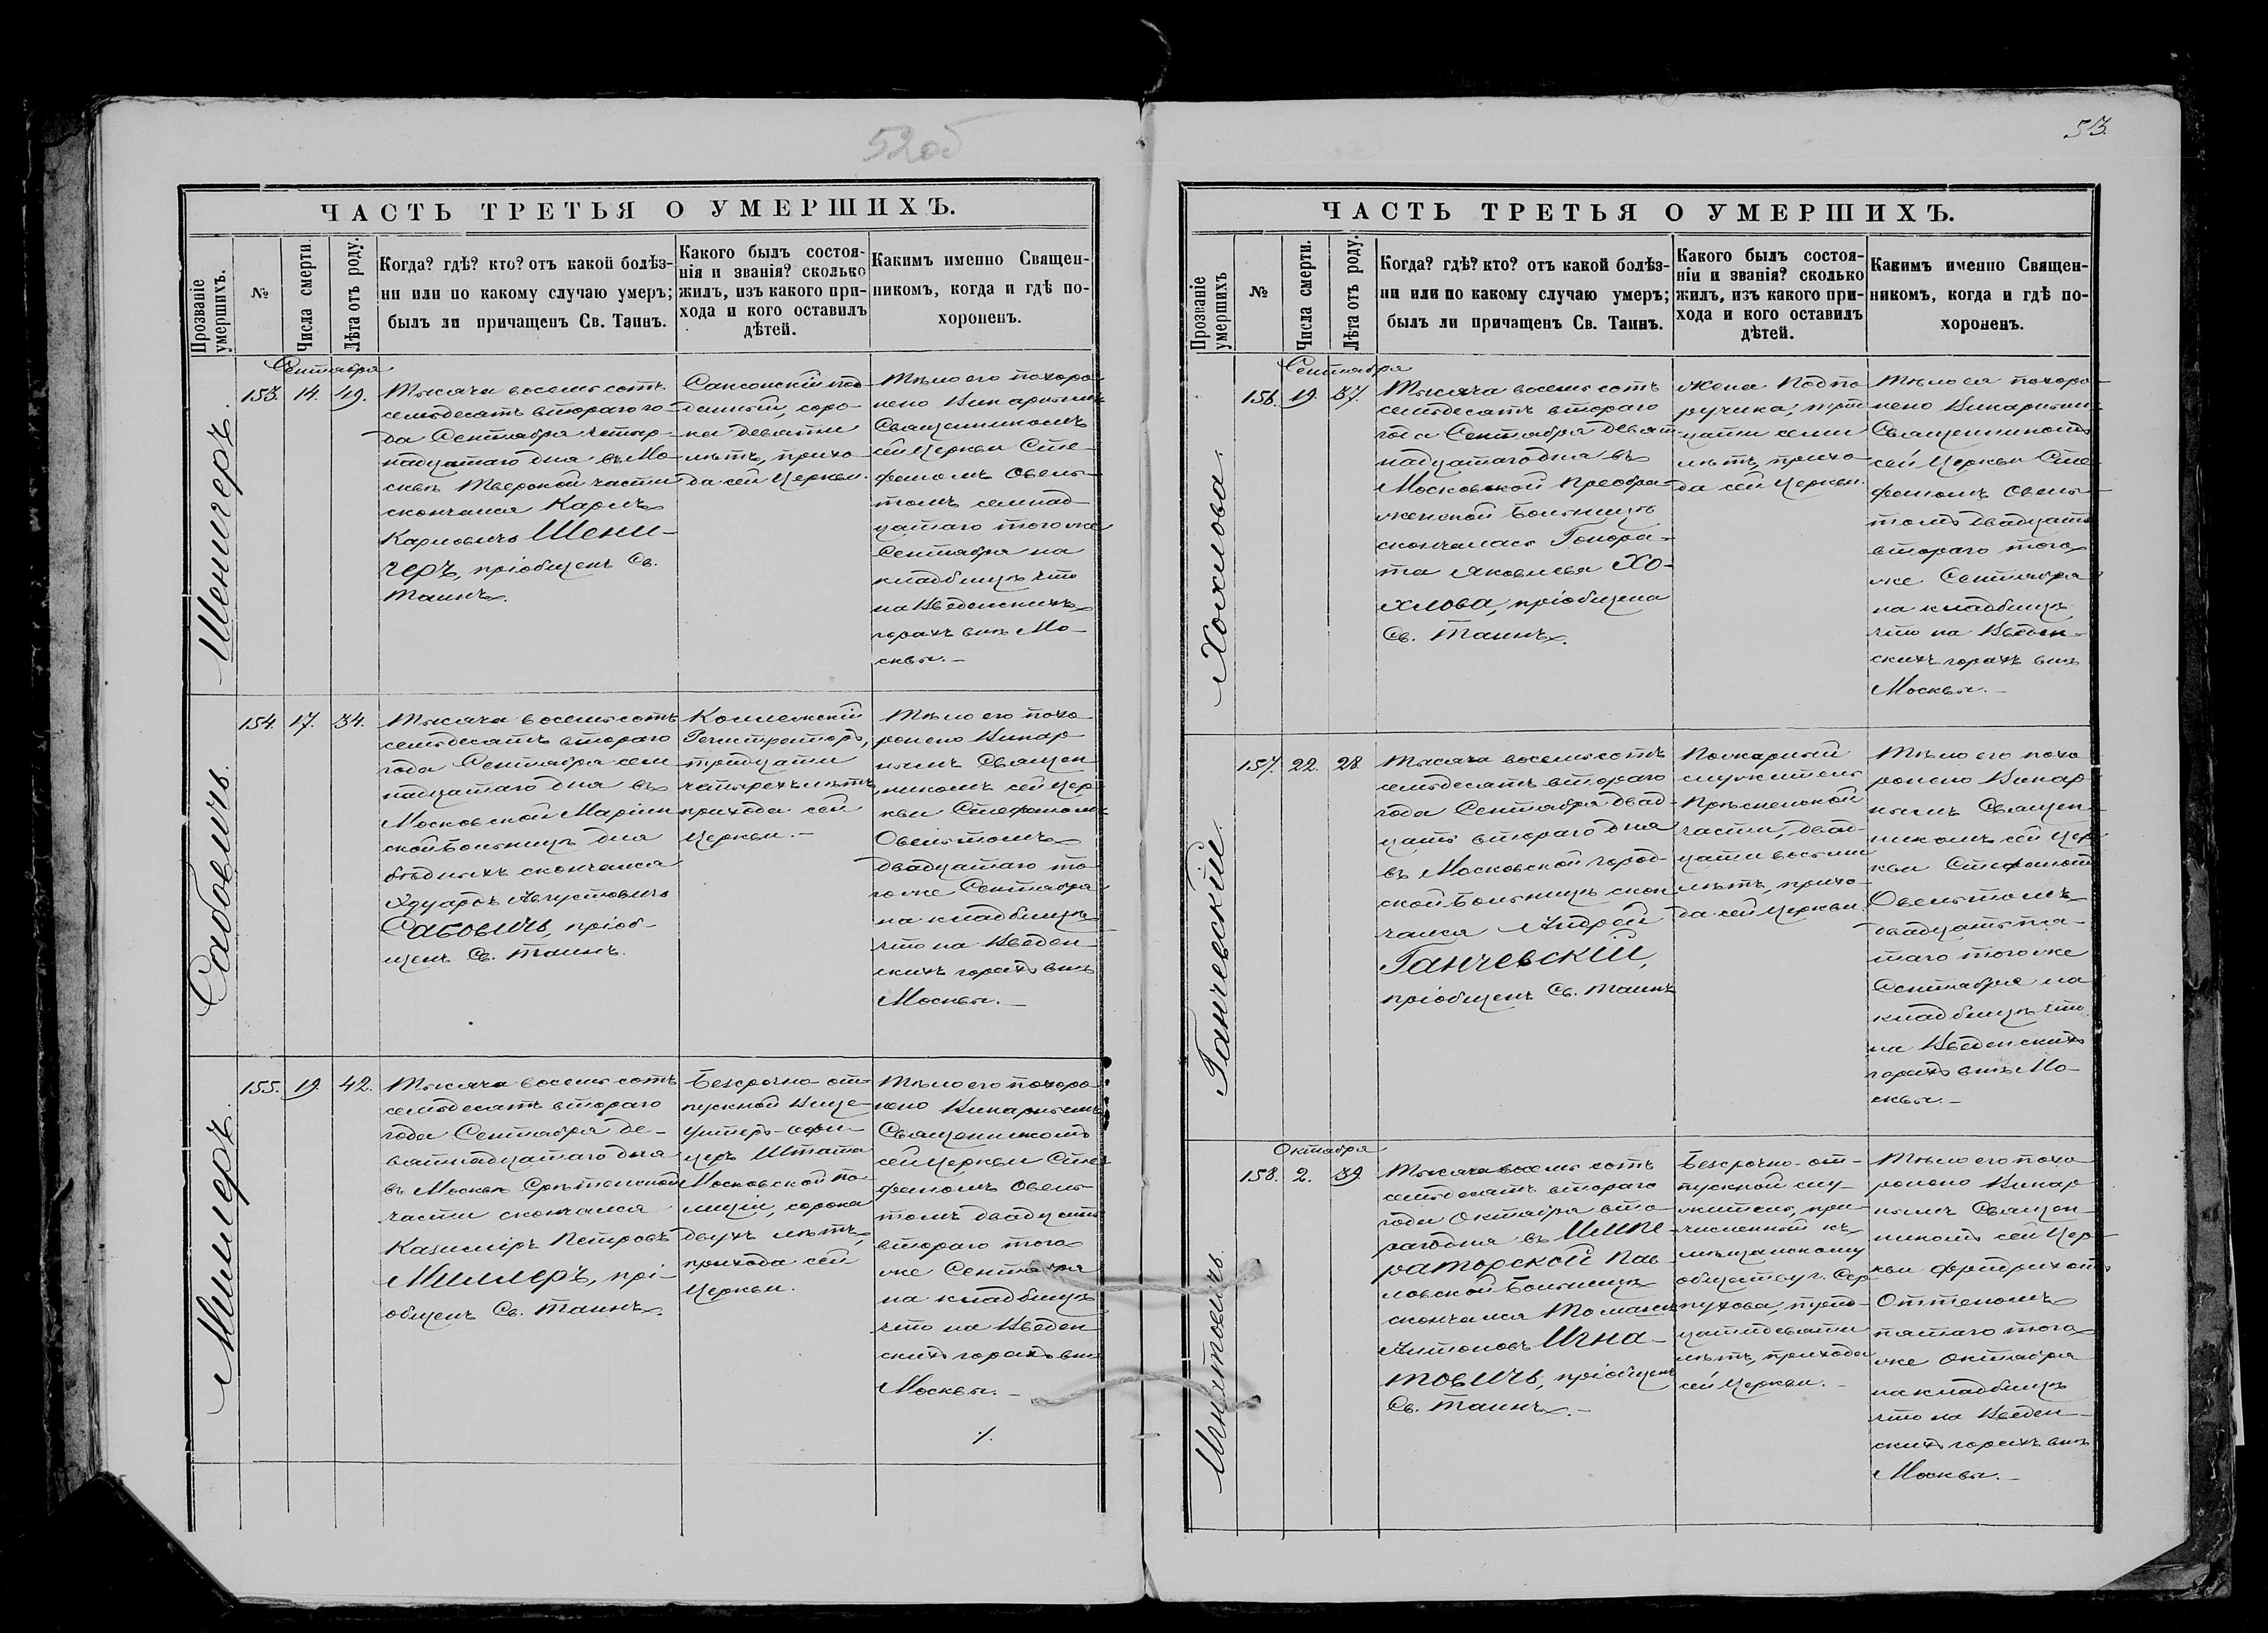 52об
ЧАСТЬ ТРЕТЬЯ О УМЕРШИХЪ.
Прозваніе умершихъ.
№
Числа смерти.
Лѣта отъ роду.
Когда? гдѣ? кто? отъ какой болѣз-
ни или по какому случаю умеръ;
былъ ли причащенъ Св. Таинъ.
Какого былъ состоя-
нія и званія? сколько
жилъ, изъ какого при-
хода и кого оставилъ
дѣтей.
Какимъ именно Священ-
никомъ, когда и гдѣ по-
хороненъ.
Сентября
Шеничеръ.
153. 14. 49.
Тысяча восемьсотъ
семьдесятъ втораго го-
да Сентября четыр-
надцатаго дня въ Мо-
сквѣ Тверской части
скончался Карлъ
Карловичъ Шени-
черъ, пріобщенъ Св.
Таинъ.
Саксонскій под-
данный, соро-
ка девяти
лѣтъ, прихо-
да сей Церкви.
Тѣло его похоро-
нено Викарнымъ
Священникомъ
сей Церкви Сте-
фаномъ Овель-
томъ семнад-
цатаго того же
Сентября на
кладбищѣ что
на Введенскихъ
горахъ внѣ Мо-
сквы.-
Сабовичъ.
154. 17. 34.
Тысяча восемьсотъ
семьдесятъ втораго
года Сентября сем
надцатаго дня въ
Московской Маріин
ской Больницѣ для
бѣдныхъ скончался
Эдуардъ Августовичъ
Сабовичъ, пріоб-
щенъ Св. Таинъ.
Коллежскій
Регистраторъ,
тридцати
четырехъ лѣтъ
прихода сей
Церкви.-
Тѣло его похо
ронено Викар
нымъ Священ
никомъ сей Цер
кви Стефаномъ
Овельтомъ
двадцатаго то-
го же Сентября
на кладбищѣ
что на Введен-
скихъ горахъ внѣ
Москвы.-
Миллеръ.
155. 19. 42.
Тысяча восемьсотъ
семьдесятъ втораго
года Сентября де-
вятнадцатаго дня
въ Москвѣ Срѣтенской
части скончался
Казиміръ Петровъ
Миллеръ, прі-
общенъ Св. Таинъ.
Безсрочно-от-
пускной Вице-
унтеръ-офи-
церъ Штата
Московской по-
лиціи, сорока
двухъ лѣтъ,
прихода сей
Церкви.
Тѣло его похоро
нено Викарнымъ
Священникомъ
сей Церкви Сте-
фаномъ Овель-
томъ двадцать
втораго того
же Сентября
на кладбищѣ
что на Введен
скихъ горахъ внѣ
Москвы.-
53.
ЧАСТЬ ТРЕТЬЯ О УМЕРШИХЪ.
Прозваніе умершихъ
№
Числа смерти.
Лѣта отъ роду.
Когда? гдѣ? кто? отъ какой болѣз-
ни или по какому случаю умеръ;
былъ ли причащенъ Св. Таинъ.
Какого былъ состоя-
ніи и званія? сколько
жилъ, изъ какого при-
хода и кого оставилъ
дѣтей.
Какимъ именно Священ-
никомъ, когда и гдѣ по-
хороненъ.
Сентября
Хохлова.
156. 19. 37.
Тысяча восемьсотъ
семьдесятъ втораго
года Сентября девят-
надцатаго дня въ
Московской Преобра-
женской Больницѣ
скончалась Гонора-
та Яковлева Хо-
хлова, пріобщена
Св. Таинъ.
Жена Подпо
ручика, трид
цати семи
лѣтъ, прихо-
да сей Церкви.
Тѣло ея похоро-
нено Викарным
Священникомъ
сей Церкви Сте-
фаномъ Овель-
томъ двадцать
втораго того
же Сентября
на кладбищѣ
что на Введен-
скихъ горахъ внѣ
Москвы.-
Ганчевскій.
157. 22. 28.
Тысяча восемьсотъ
семьдесятъ втораго
года Сентября двад-
цать втораго дня
въ Московской город-
ской Больницѣ скон
чался Андрей
Ганчевскій,
пріобщенъ Св. Таинъ
Пожарный
служитель
Прѣсненской
части, двад-
цати восьми
лѣтъ, прихо-
да сей Церкви.
Тѣло его похо
ронено Викар
нымъ Священ-
никомъ сей Цер-
кви Стефаномъ
Овельтомъ
двадцать пя-
таго того же
Сентября на
кладбищѣ что
на Введенскихъ
горахъ внѣ Мо-
сквы.-
Октября
Игнатовичъ.
158. 2. 39.
Тысяча восемьсотъ
семьдесятъ втораго
года Октября вто-
раго дня въ Импе
раторской Пав-
ловской Больницѣ
скончался Томашъ
Антоновъ Игна-
товичъ, пріобщенъ
Св. Таинъ.-
Безсрочно-от-
пускной слу-
житель, при-
численный къ
мѣщанскому
обществу г. Сер
пухова, трид-
цати девяти
лѣтъ, прихода
сей Церкви.-
Тѣло его похо
ронено Викар
нымъ Священ-
никомъ сей Цер-
кви Фридрихомъ
Оттеномъ
пятаго того
же Октября
на кладбищѣ
что на Введен-
скихъ горахъ внѣ
Москвы.-